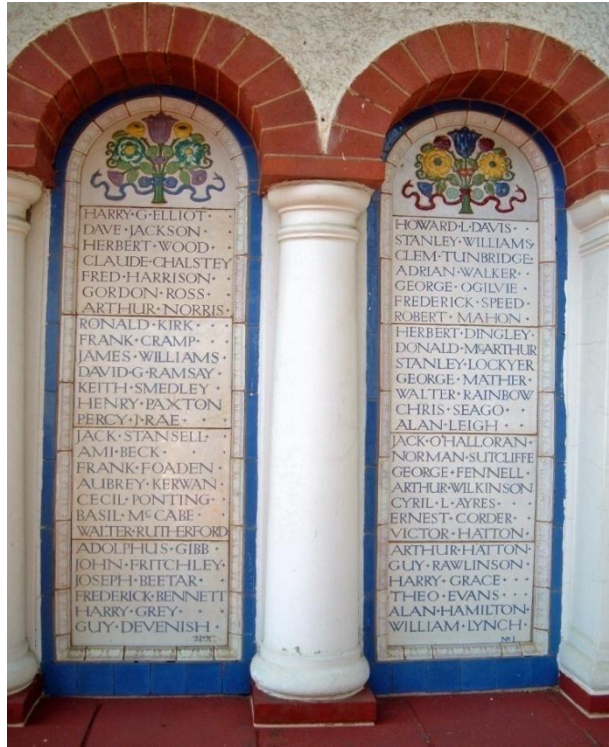 HARRY·G·ELLIOT·
DAVE·JACKSON·
HERBERT·WOOD·
CLAUDE·CHALSTEY
FRED·HARRISON·
GORDON·ROSS·
ARTHUR·NORRIS·
RONALD·KIRK·
FRANK·CRAMP·
JAMES·WILLIAMS·
DAVID·G·RAMSAY·
KEITH·SMEDLEY·
HENRY·PAXTON·
PERCY·J·RAE·
JACK·STANSELL·
AMI·BECK·
FRANK·FOADEN·
AUBREY·KERWAN·
CECIL·PONTING·
BASIL·McCABE·
WALTER·RUTHERFORD
ADOLPHUS·GIBB·
JOHN·FRITCHLEY·
JOSEPH·BEETAR·
FREDERICK·BENNETT
HARRY·GREY·
GUY·DEVENISH·
HOWARD·L·DAVIS·
STANLEY·WILLIAMS·
CLEM·TUNBRIDGE·
ADRIAN·WALKER·
GEORGE·OGILVIE·
FREDERICK·SPEED·
ROBERT·MAHON·
HERBERT·DINGLEY·
DONALD·McARTHUR
STANLEY·LOCKYER
GEORGE·MATHER·
WALTER·RAINBOW
CHRIS·SEAGO·
ALAN·LEIGH·
JACK·O'HALLORAN·
NORMAN·SUTCLIFFE
GEORGE·FENNELL·
ARTHUR·WILKINSON
CYRIL·L·AYRES·
ERNEST·CORDER·
VICTOR·HATTON·
ARTHUR·HATTON·
GUY·RAWLINSON·
HARRY·GRACE·
THEO·EVANS·
ALAN·HAMILTON·
WILLIAM·LYNCH·